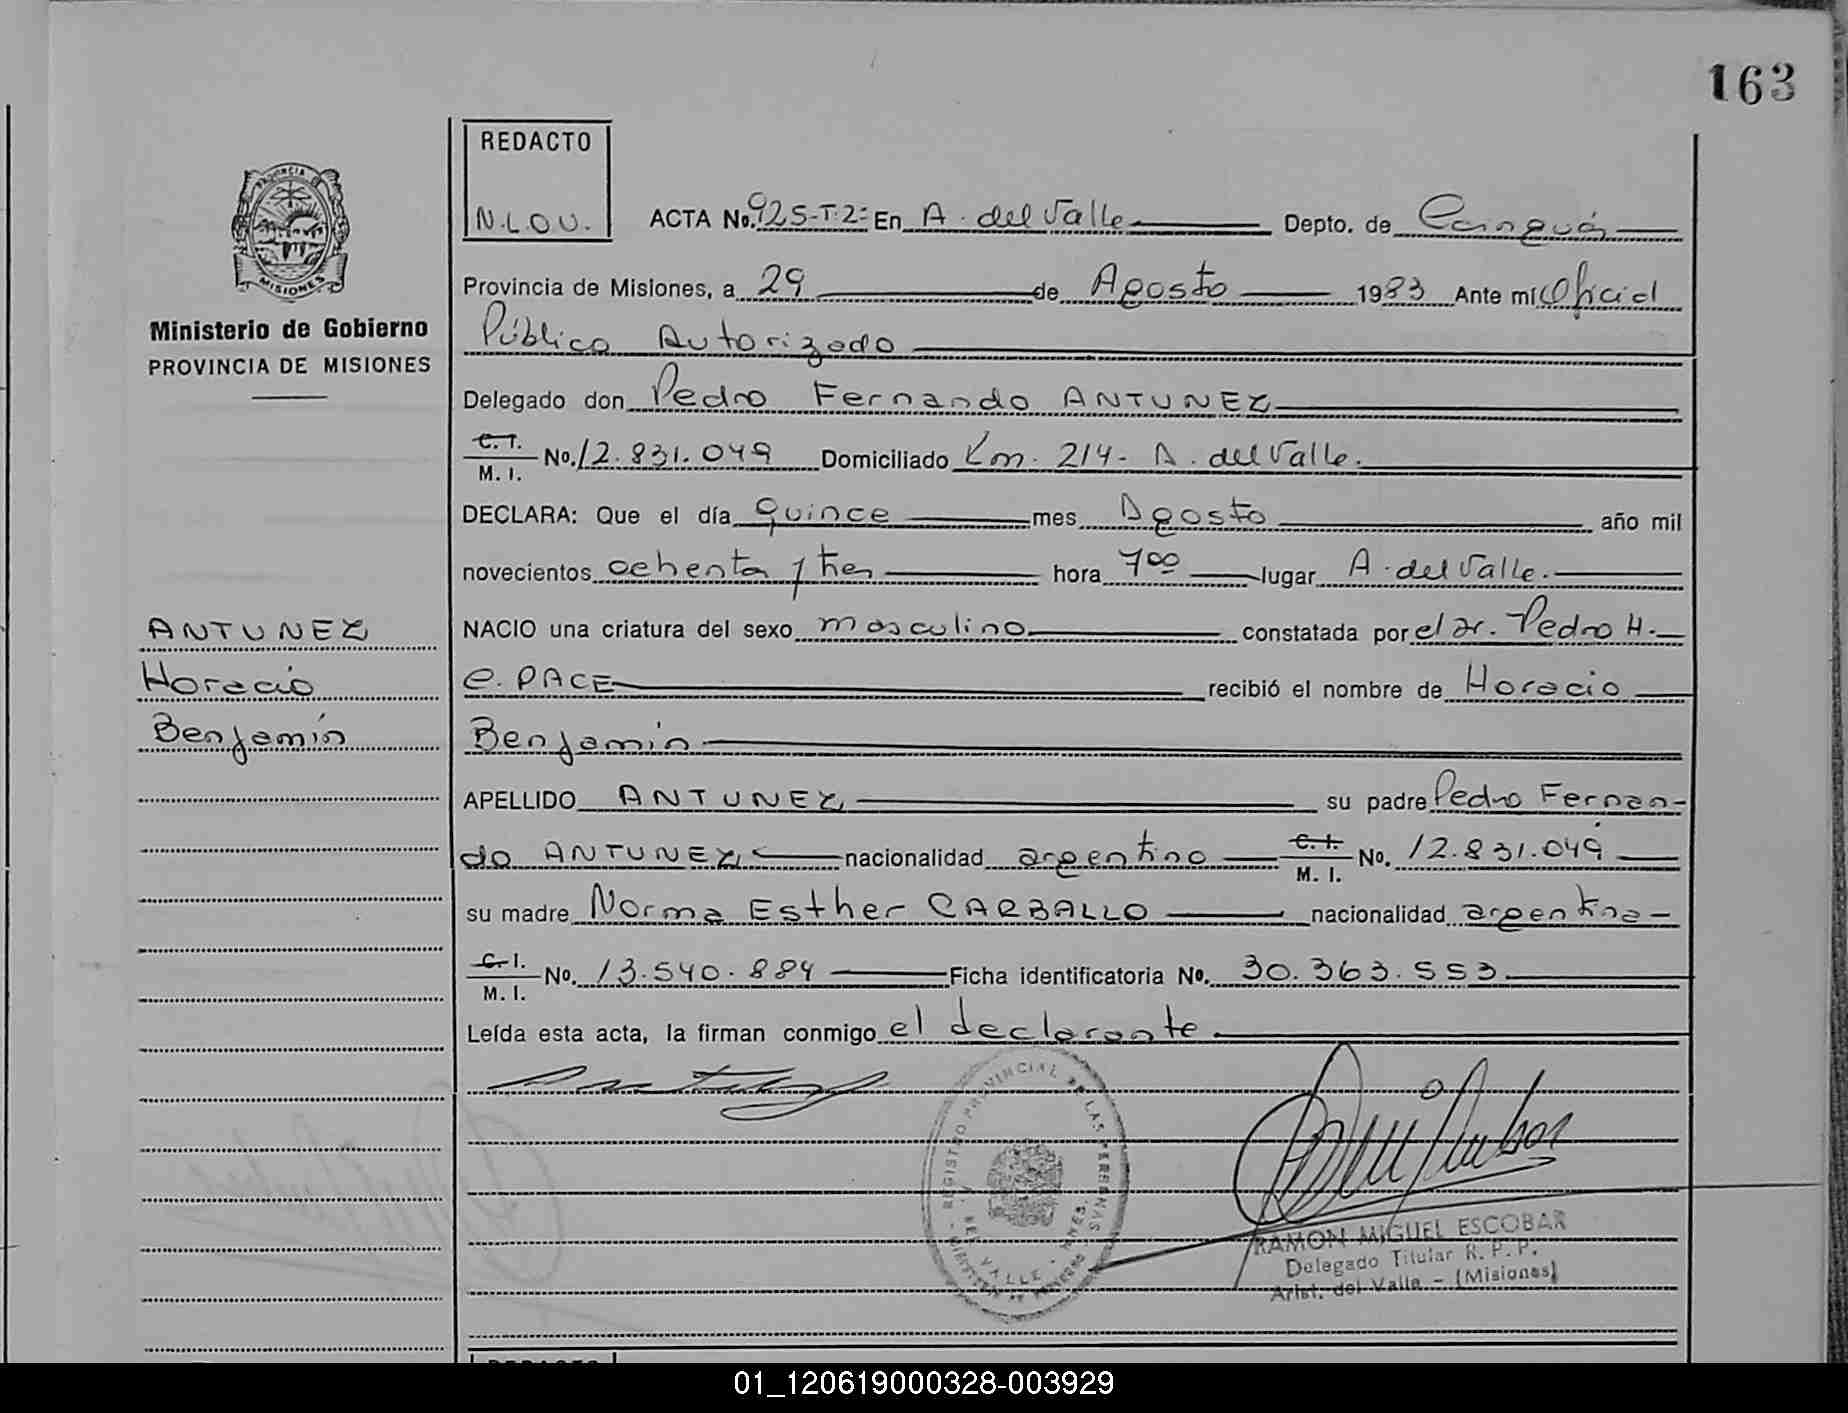 163
REDACTO
N.L.O.U.
ACTA No. 925-T:2: En A. del Valle Depto. de Cainguás
PROVINCIA DE
MISIONES
Ministerio de Gobierno
PROVINCIA DE MISIONES
Provincia de Misiones, a 29 de Agosto 1983 Ante mí Oficial
Público Autorizado
Delegado don Pedro Fernando ANTUNEZ
C. I.
M. I. No. 12.831.049 Domiciliado Km. 214- A. del Valle.
DECLARA: Que el día quince mes Agosto año mil
novecientos ochenta y tres hora 7 00 lugar A. del Valle.
ANTUNEZ
NACIO una criatura del sexo masculino constatada por el Dr. Pedro H.
Horacio
e. PACE recibió el nombre de Horacio
Benjamín
Benjamín
APELLIDO ANTUNEZ su padre Pedro Fernan-
do ANTUNEZ nacionalidad argentino C. I.
M. I. No. 12.831.049
su madre Norma Esther CARBALLO nacionalidad argentina
C. I.
M. I. No. 13.540.884 Ficha identificatoria No. 30.363.553
Leída esta acta, la firman conmigo el declarante.
REGISTRO PROVINCIAL DE LAS PERSONAS
DEL VALLE - MNES.
RAMON MIGUEL ESCOBAR
Delegado Titular R. P. P.
Arist. del Valle - (Misiones)
REDACTO
01_120619000328-003929